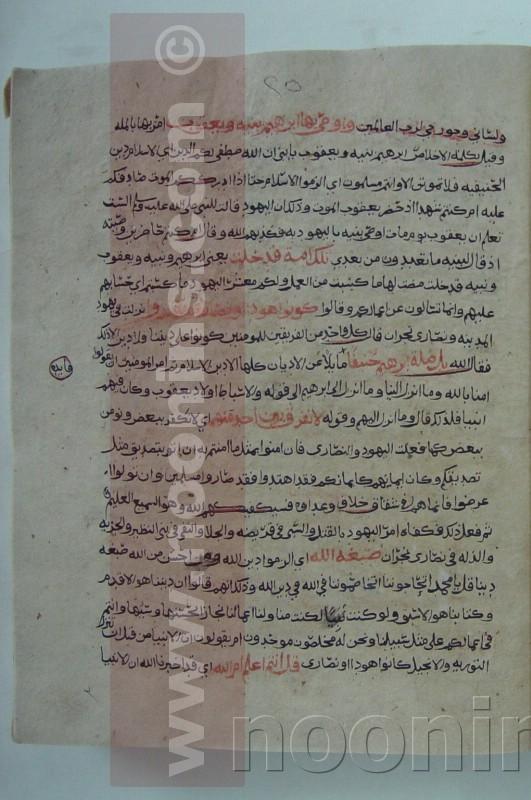 ٢٥
ولساني وجوارحي لرب العالمين ووصى بها ابرهيم بنيه ويعقوب امر بها بالمله
وقيل بكلمه الاخلاص ابرهيم بنيه ويعقوب يا بني ان الله اصطفى لكم الدين اي الاسلام دين
الحنيفيه فلا تموتن الا وانتم مسلمون اي الزموا الاسلام حتا اذا ادرككم الموت صادفكم
عليه ام كنتم شهدا اذ حضر يعقوب الموت وذلك ان اليهود قالت للنبي صلى الله عليه وسلم الست
تعلم ان يعقوب يوم مات اوصى بنيه باليهوديه فكذبهم الله وقال ام كنتم حاضرين وصيته
اذ قال لبنيه ما تعبدون من بعدي تلك امة قد خلت يعني ابرهيم وبنيه ويعقوب
وبنيه قد خلت مضت لها ما كسبت من العمل ولكم معشر اليهود ما كسبتم اي حسابهم
عليهم وانما تسالون عن اعمالكم وقالوا كونوا هودا او نصارى نزلت في يهود
المدينه ونصارى نجران قال كل واحد من الفريقين للمومنين كونوا على ديننا ولا دين الا ذلك
فقال الله بل ملة ابرهيم حنيفا مايلا عن الاديان كلها الا دين الاسلام ثم امر المومنين ان يقولوا
امنا بالله وما انزل الينا وما انزل الى ابرهيم الى قوله والاسباط اولاد يعقوب وكان فيهم
انبيا فلذلك قال وما انزل اليهم وقوله لا نفرق بين أحد منهم اي لا نكفر ببعض ونومن
ببعض كما فعلت اليهود والنصارى فان امنوا بمثل ما امنتم به ان اتو بتصديق مثل
تصديقكم وكان ايمانهم كايمانكم فقد اهتدوا فقد صاروا مسلمين وان تولوا
عرضوا فانما هم في شقاق خلاف وعداوه فسيكفيكهم الله وهو السميع العليم
ثم فعل ذلك فكفاه امر اليهود بالقتل والسبي في قريضه والجلا والنفي في بني النظير والجزيه
والذله في نصارى نجران صبغة الله اي الزموا دين الله ومن احسن من الله صبغه
دينا قل يا محمد اتحاجوننا اتخاصموننا في الله في دين الله وذلك انهم قالوا ان ديننا هو الاقدم
وكتابنا هو الاسبق ولو كنت نبيا لكنت منا ولنا اعمالنا نجازا بحسنها وسيها وانتم
في اعمالكم على مثل سبيلنا ونحن له مخلصون موحدون ام يقولون ان الانبيا من قبل ان تنزل
التوريه والانجيل كانوا هودا او نصارى قل انتم اعلم ام الله اي قد اخبرنا الله ان الانبيا
فايده
www.noorlins.com ©
noorin